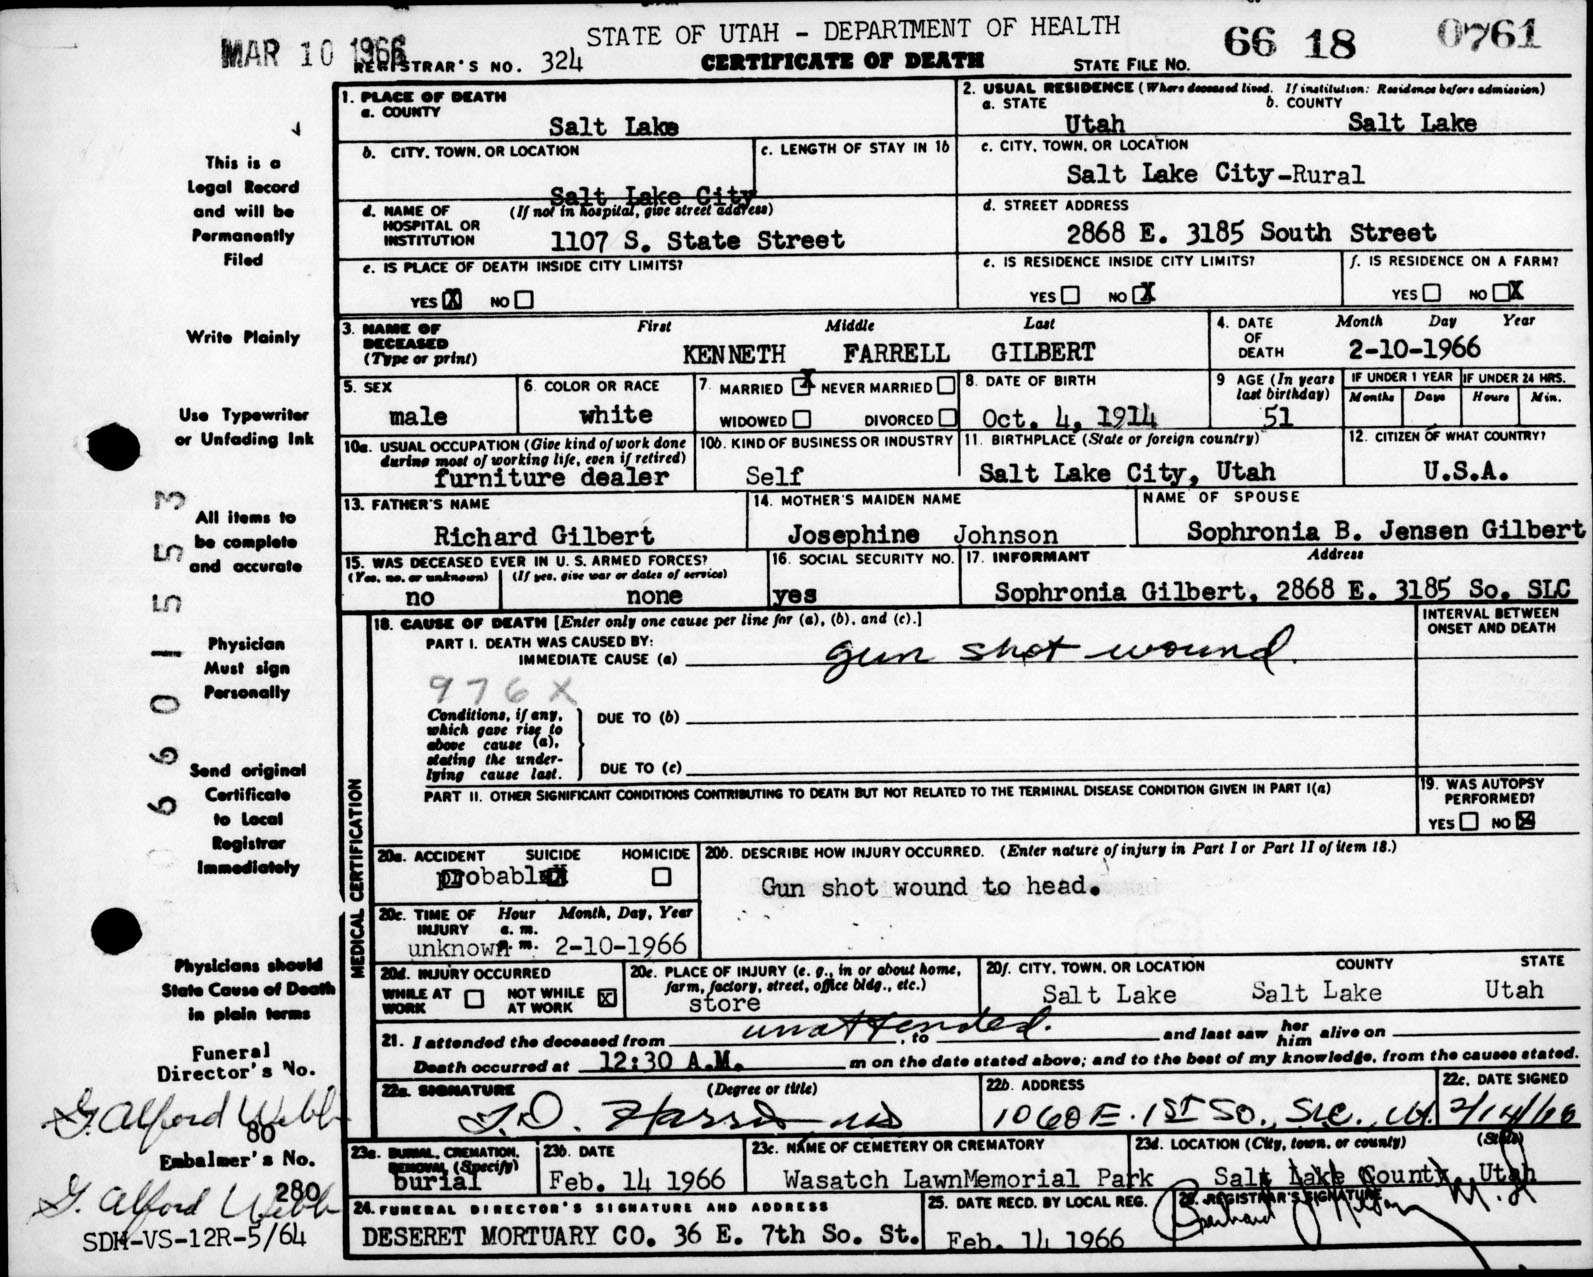 MAR 10 1966
STATE OF UTAH - DEPARTMENT OF HEALTH
REGISTRAR'S NO. 324
CERTIFICATE OF DEATH
STATE FILE NO. 66 18 0761
1. PLACE OF DEATH
a. COUNTY
Salt Lake
2. USUAL RESIDENCE (Where deceased lived. If institution: Residence before admission)
a. STATE
Utah
b. COUNTY
Salt Lake
b. CITY, TOWN, OR LOCATION
Salt Lake City
c. LENGTH OF STAY IN 1b
c. CITY, TOWN, OR LOCATION
Salt Lake City-Rural
d. NAME OF HOSPITAL OR INSTITUTION
(If not in hospital, give street address)
1107 S. State Street
d. STREET ADDRESS
2868 E. 3185 South Street
e. IS PLACE OF DEATH INSIDE CITY LIMITS?
YES X NO
e. IS RESIDENCE INSIDE CITY LIMITS?
YES NO X
f. IS RESIDENCE ON A FARM?
YES NO X
3. NAME OF DECEASED
(Type or print)
First Middle Last
KENNETH FARRELL GILBERT
4. DATE OF DEATH
Month Day Year
2-10-1966
5. SEX
male
6. COLOR OR RACE
white
7. MARRIED X NEVER MARRIED
WIDOWED DIVORCED
8. DATE OF BIRTH
Oct. 4, 1914
9 AGE (In years last birthday)
51
IF UNDER 1 YEAR
Months Days
IF UNDER 24 HRS.
Hours Min.
10a. USUAL OCCUPATION (Give kind of work done during most of working life, even if retired)
furniture dealer
10b. KIND OF BUSINESS OR INDUSTRY
Self
11. BIRTHPLACE (State or foreign country)
Salt Lake City, Utah
12. CITIZEN OF WHAT COUNTRY?
U.S.A.
13. FATHER'S NAME
Richard Gilbert
14. MOTHER'S MAIDEN NAME
Josephine Johnson
NAME OF SPOUSE
Sophronia B. Jensen Gilbert
15. WAS DECEASED EVER IN U. S. ARMED FORCES?
(Yes, no, or unknown) (If yes, give war or dates of service)
no none
16. SOCIAL SECURITY NO.
yes
17. INFORMANT Address
Sophronia Gilbert, 2868 E. 3185 So. SLC
MEDICAL CERTIFICATION
18. CAUSE OF DEATH [Enter only one cause per line for (a), (b), and (c).]
PART I. DEATH WAS CAUSED BY:
IMMEDIATE CAUSE (a) gun shot wound.
976X
INTERVAL BETWEEN ONSET AND DEATH
Conditions, if any, which gave rise to above cause (a), stating the underlying cause last.
DUE TO (b)
DUE TO (c)
PART II. OTHER SIGNIFICANT CONDITIONS CONTRIBUTING TO DEATH BUT NOT RELATED TO THE TERMINAL DISEASE CONDITION GIVEN IN PART I(a)
19. WAS AUTOPSY PERFORMED?
YES NO X
20a. ACCIDENT SUICIDE HOMICIDE
probable X
20b. DESCRIBE HOW INJURY OCCURRED. (Enter nature of injury in Part I or Part II of item 18.)
Gun shot wound to head.
20c. TIME OF INJURY
Hour Month, Day, Year
a. m.
p. m.
unknown 2-10-1966
20d. INJURY OCCURRED
WHILE AT WORK NOT WHILE AT WORK X
20e. PLACE OF INJURY (e. g., in or about home, farm, factory, street, office bldg., etc.)
store
20f. CITY, TOWN, OR LOCATION COUNTY STATE
Salt Lake Salt Lake Utah
21. I attended the deceased from unattended. , to and last saw her him alive on
Death occurred at 12:30 A.M. m on the date stated above; and to the best of my knowledge, from the causes stated.
22a. SIGNATURE (Degree or title)
22b. ADDRESS
1060 E. 1st So., SLC., Ut.
22c. DATE SIGNED
2/14/66
23a. BURIAL, CREMATION, REMOVAL (Specify)
burial
23b. DATE
Feb. 14 1966
23c. NAME OF CEMETERY OR CREMATORY
Wasatch LawnMemorial Park
23d. LOCATION (City, town, or county) (State)
Salt Lake County Utah
24. FUNERAL DIRECTOR'S SIGNATURE AND ADDRESS
DESERET MORTUARY CO. 36 E. 7th So. St.
25. DATE RECD. BY LOCAL REG.
Feb. 14 1966
26. REGISTRAR'S SIGNATURE
This is a
Legal Record
and will be
Permanently
Filed
Write Plainly
Use Typewriter
or Unfading Ink
All items to
be complete
and accurate
Physician
Must sign
Personally
Send original
Certificate
to Local
Registrar
Immediately
Physicians should
State Cause of Death
in plain terms
Funeral
Director's No.
G. Alford Webb
80
Embalmer's No.
280
G. Alford Webb
SDH-VS-12R-5/64
66015553